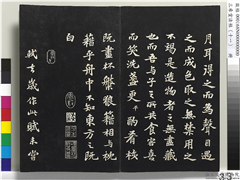 月耳得之而為聲目遇
之而成色取之無禁用之
不竭是造物者之無盡藏
也而吾與子之所共食客喜
而笑洗盞更酌肴核
既盡杯盤狼籍相與枕
藉乎舟中不知東方之既
白
軾去歲作此賦未嘗